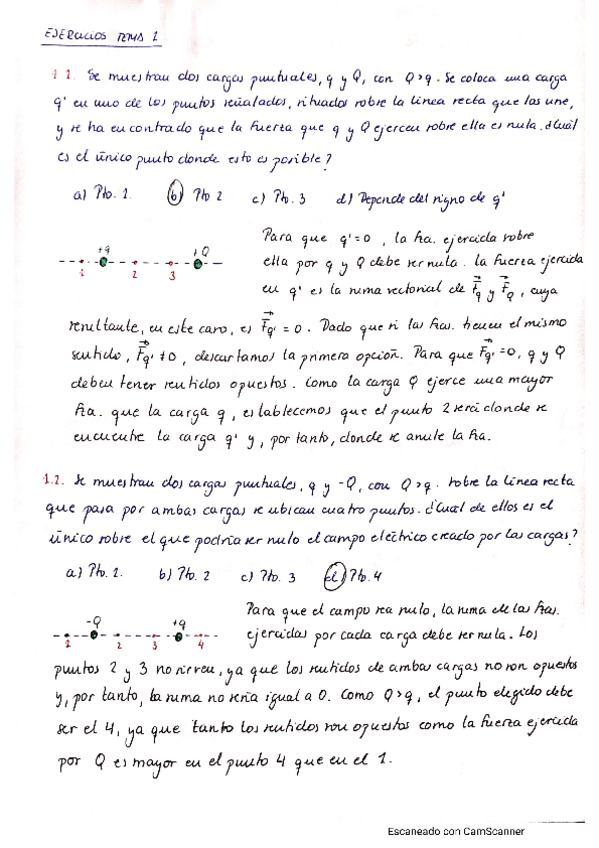 EJERCICIOS TEMA 1
1.1. Se muestran dos cargas puntuales, q y Q, con Q>q. Se coloca una carga
q' en uno de los puntos señalados, situados sobre la línea recta que las une,
y se ha encontrado que la fuerza que q y Q ejercen sobre ella es nula. ¿Cuál
es el único punto donde esto es posible?
a) Pto. 1. b) Pto 2 c) Pto. 3 d) Depende del signo de q'
+q +Q
1 2 3
Para que q'=0, la fza. ejercida sobre
ella por q y Q debe ser nula. La fuerza ejercida
en q' es la suma vectorial de F⃗q y F⃗Q, cuya
resultante, en este caso, es F⃗q' = 0. Dado que si las fzas. tienen el mismo
sentido, F⃗q' ≠ 0, descartamos la primera opción. Para que F⃗q' = 0, q y Q
deben tener sentidos opuestos. Como la carga Q ejerce una mayor
fza. que la carga q, establecemos que el punto 2 será donde se
encuentre la carga q' y, por tanto, donde se anule la fza.
1.2. Se muestran dos cargas puntuales, q y -Q, con Q>q. Sobre la línea recta
que pasa por ambas cargas se ubican cuatro puntos. ¿Cuál de ellos es el
único sobre el que podría ser nulo el campo eléctrico creado por las cargas?
a) Pto. 1. b) Pto. 2 c) Pto. 3 d) Pto. 4
-Q +q
1 2 3 4
Para que el campo sea nulo, la suma de las fzas.
ejercidas por cada carga debe ser nula. Los
puntos 2 y 3 no sirven, ya que los sentidos de ambas cargas no son opuestos
y, por tanto, la suma no sería igual a 0. Como Q>q, el punto elegido debe
ser el 4, ya que tanto los sentidos son opuestos como la fuerza ejercida
por Q es mayor en el punto 4 que en el 1.
Escaneado con CamScanner